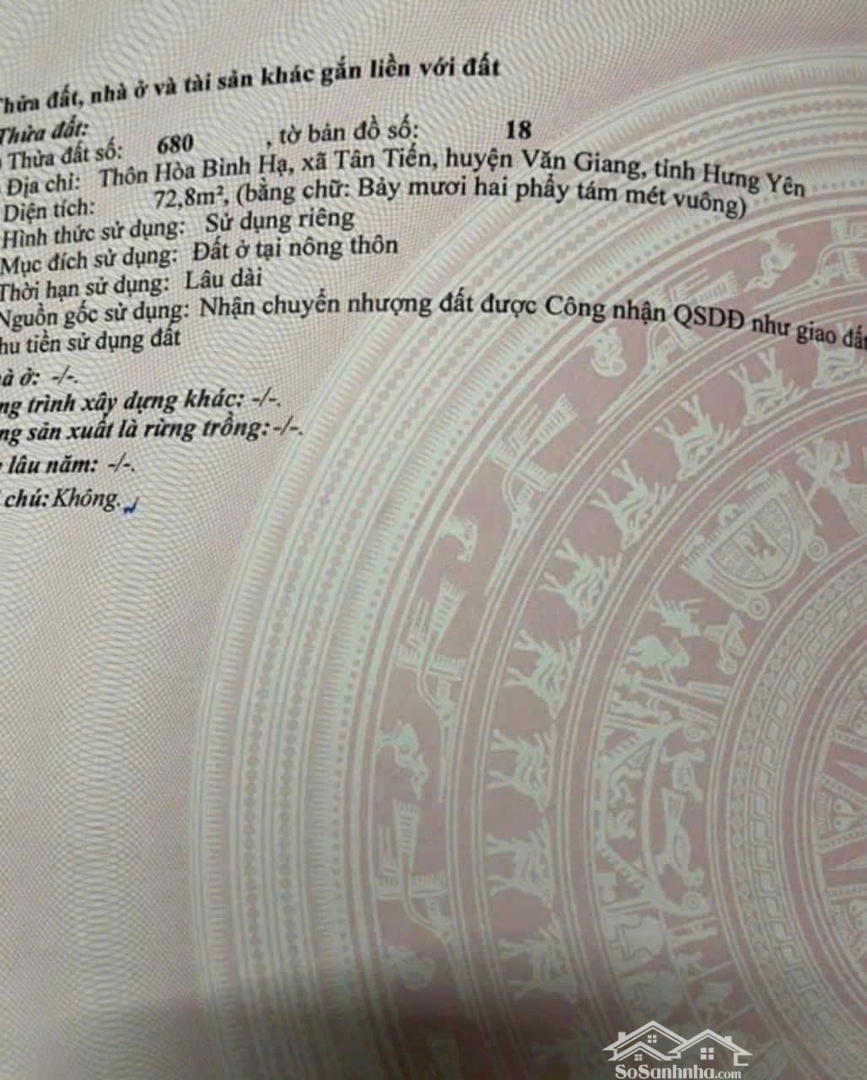 Thửa đất, nhà ở và tài sản khác gắn liền với đất
Thửa đất:
Thửa đất số: 680 , tờ bản đồ số: 18
Địa chỉ: Thôn Hòa Bình Hạ, xã Tân Tiến, huyện Văn Giang, tỉnh Hưng Yên
Diện tích: 72,8m², (bằng chữ: Bảy mươi hai phẩy tám mét vuông)
Hình thức sử dụng: Sử dụng riêng
Mục đích sử dụng: Đất ở tại nông thôn
Thời hạn sử dụng: Lâu dài
Nguồn gốc sử dụng: Nhận chuyển nhượng đất được Công nhận QSDĐ như giao đất
hu tiền sử dụng đất
à ở: -/-.
ng trình xây dựng khác: -/-.
ng sản xuất là rừng trồng: -/-.
lâu năm: -/-.
chú: Không.
SoSanhnha.com